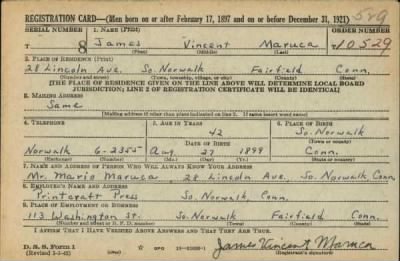 REGISTRATION CARD—(Men born on or after February 17, 1897 and on or before December 31, 1921) 529
SERIAL NUMBER 1. NAME (Print) ORDER NUMBER
T 8 James Vincent Maruca T10,529
(First) (Middle) (Last)
2. PLACE OF RESIDENCE (Print)
28 Lincoln Ave. So. Norwalk Fairfield Conn.
(Number and street) (Town, township, village, or city) (County) (State)
[THE PLACE OF RESIDENCE GIVEN ON THE LINE ABOVE WILL DETERMINE LOCAL BOARD
JURISDICTION; LINE 2 OF REGISTRATION CERTIFICATE WILL BE IDENTICAL]
3. MAILING ADDRESS
Same
[Mailing address if other than place indicated on line 2. If same insert word same]
4. TELEPHONE 5. AGE IN YEARS 6. PLACE OF BIRTH
42 So. Norwalk
DATE OF BIRTH (Town or county)
Norwalk 6-2355 Aug 27 1899 Conn.
(Exchange) (Number) (Mo.) (Day) (Yr.) (State or country)
7. NAME AND ADDRESS OF PERSON WHO WILL ALWAYS KNOW YOUR ADDRESS
Mr. Mario Maruca, 28 Lincoln Ave. So. Norwalk, Conn.
8. EMPLOYER'S NAME AND ADDRESS
Printcraft Press So. Norwalk, Conn.
9. PLACE OF EMPLOYMENT OR BUSINESS
113 Washington St. So. Norwalk Fairfield Conn.
(Number and street or R. F. D. number) (Town) (County) (State)
I AFFIRM THAT I HAVE VERIFIED ABOVE ANSWERS AND THAT THEY ARE TRUE.
D. S. S. Form 1 GPO James Vincent Maruca
(Revised 1-1-42) (Registrant's signature)